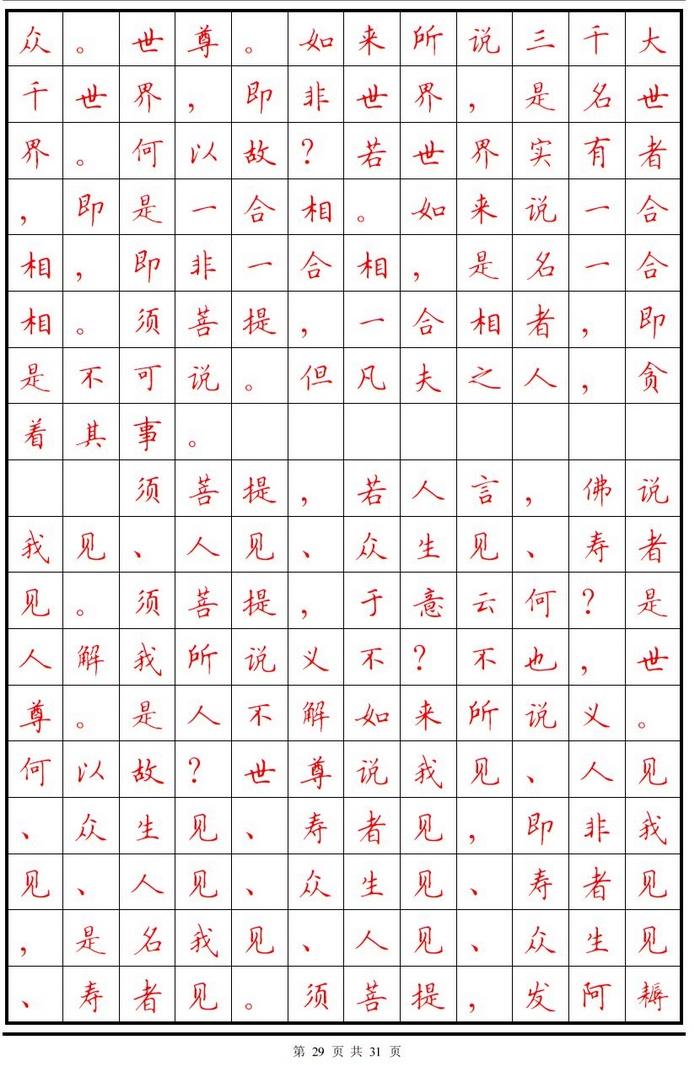 众。世尊。如来所说三千大
千世界，即非世界，是名世
界。何以故？若世界实有者
，即是一合相。如来说一合
相，即非一合相，是名一合
相。须菩提，一合相者，即
是不可说。但凡夫之人，贪
着其事。
须菩提，若人言，佛说
我见、人见、众生见、寿者
见。须菩提，于意云何？是
人解我所说义不？不也，世
尊。是人不解如来所说义。
何以故？世尊说我见、人见
、众生见、寿者见，即非我
见、人见、众生见、寿者见
，是名我见、人见、众生见
、寿者见。须菩提，发阿耨
第 29 页 共 31 页